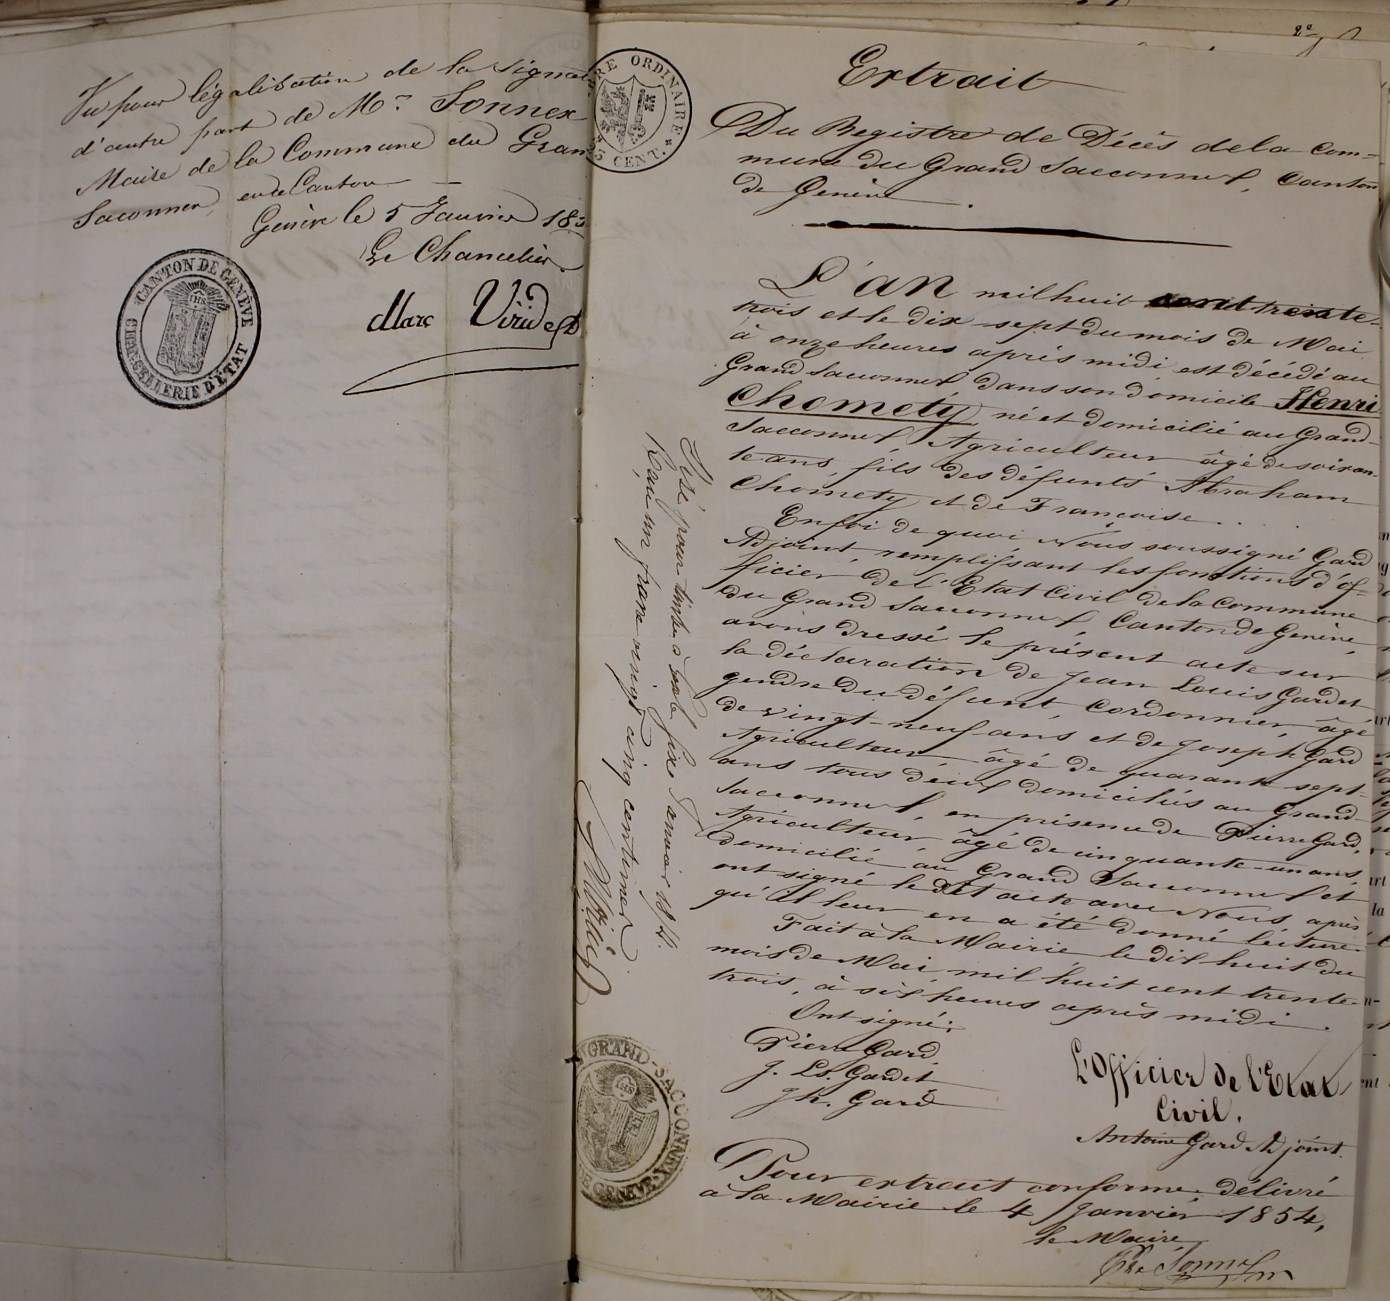 Vu pour légalisation de la signat
d'autre part de Mr. Sonnex
Maire de la Commune du Gran
Saconnex, en ce Canton —
Genève le 5 Janvier 185
Le Chancelier
Marc Viridet
CANTON DE GENÈVE
CHANCELLERIE D'ETAT
TIMBRE ORDINAIRE
25 CENT.
Extrait
Du Registre de Décès de la Com=
mune du Grand Sacconnex, Canton
de Genève.
L'an mil huit cent trente-
trois et le dix sept du mois de Mai
à onze heures après midi est décédé au
Grand Sacconnex dans son domicile Henri
Chomety né et domicilié au Grand-
Sacconnex Agriculteur âgé de soixan-
te ans, fils des défunts Abraham
Chomety et de Françoise . .
En foi de quoi Nous soussigné Gard
Adjoint remplissant les fonctions d'of=
ficier de l'Etat Civil de la Commune
du Grand Sacconnex Canton de Genève,
avons dressé le présent acte sur
la déclaration de Jean Louis Gardet
gendre du défunt, Cordonnier, âgé
de vingt-neuf ans et de Joseph Gard
Agriculteur, âgé de quarante sept-
ans tous deux domiciliés au Grand-
Sacconnex, en présence de Pierre Gard,
Agriculteur, âgé de cinquante-un ans,
domicilié au Grand Sacconnex et
ont signé le dit acte avec Nous après
qu'il leur en a été donné lecture.
Fait à la Mairie le dix huit du
mois de Mai mil huit cent trente-
trois, à six heures après midi.
Ont signé:
Pierre Gard
J. Ls. Gardet
Jh. Gard
L'Officier de l'Etat
Civil.
Antoine Gard Adjoint.
Pour extrait conforme délivré
à la Mairie le 4 Janvier 1854,
le Maire,
Sonnex
Visé pour timbre à fixe Janvier 1854.
Reçu un franc vingt cinq centimes
GRAND-SACONNEX
DE GENEVE